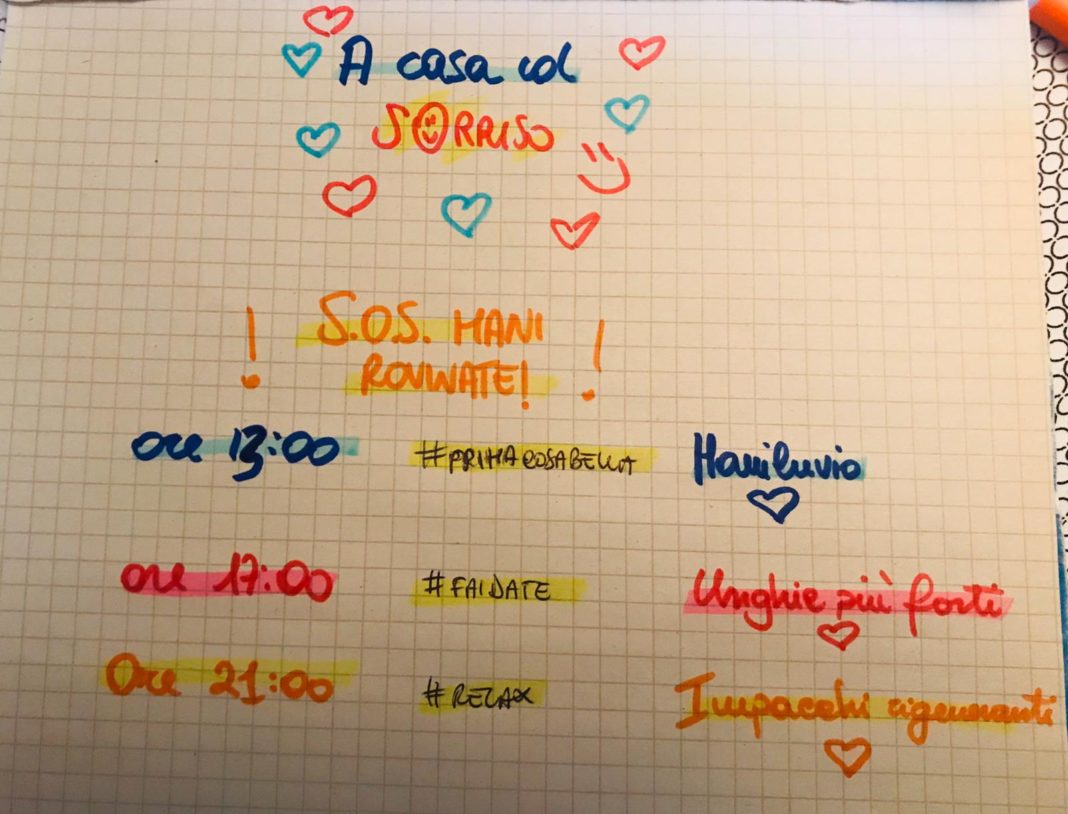 A casa col
SORRISO
! S.O.S. MANI !
ROVINATE!
ore 13:00 #PRIMACOSABELLA Maniluvio
ore 17:00 #FAIDATE Unghie più forti
Ore 21:00 #RELAX Impacchi rigeneranti